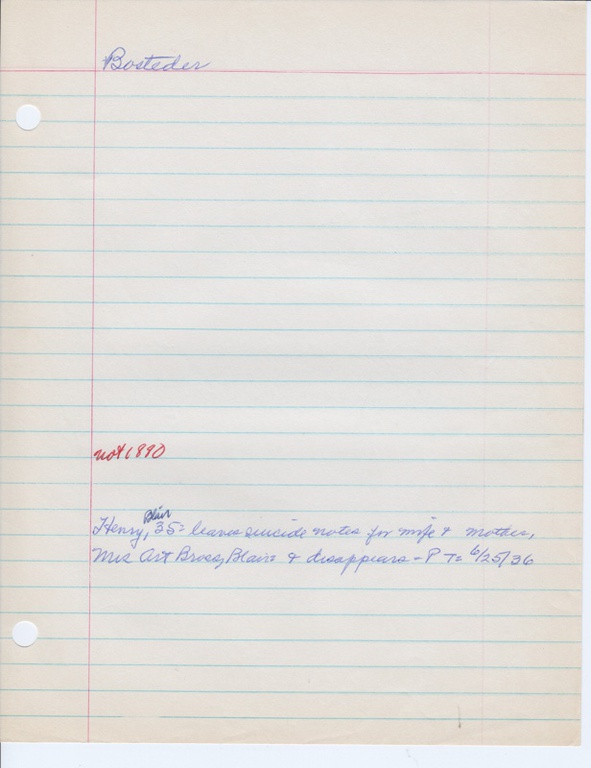 Bosteder
not 1890
Blair
Henry, 35= leaves suicide notes for wife & mother,
Mrs Art Brossy, Blair= & disappears - P T= 6/25/36